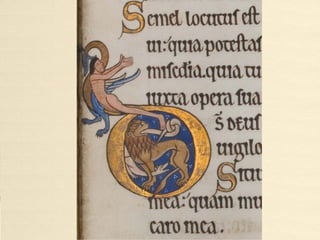 Semel locutus est
ui: quia potestas
misc̄dia. quia tu
iuxta opera sua
D S̄ DEUS
uigilo
Sitiu
mea: quam mu
caro mea.